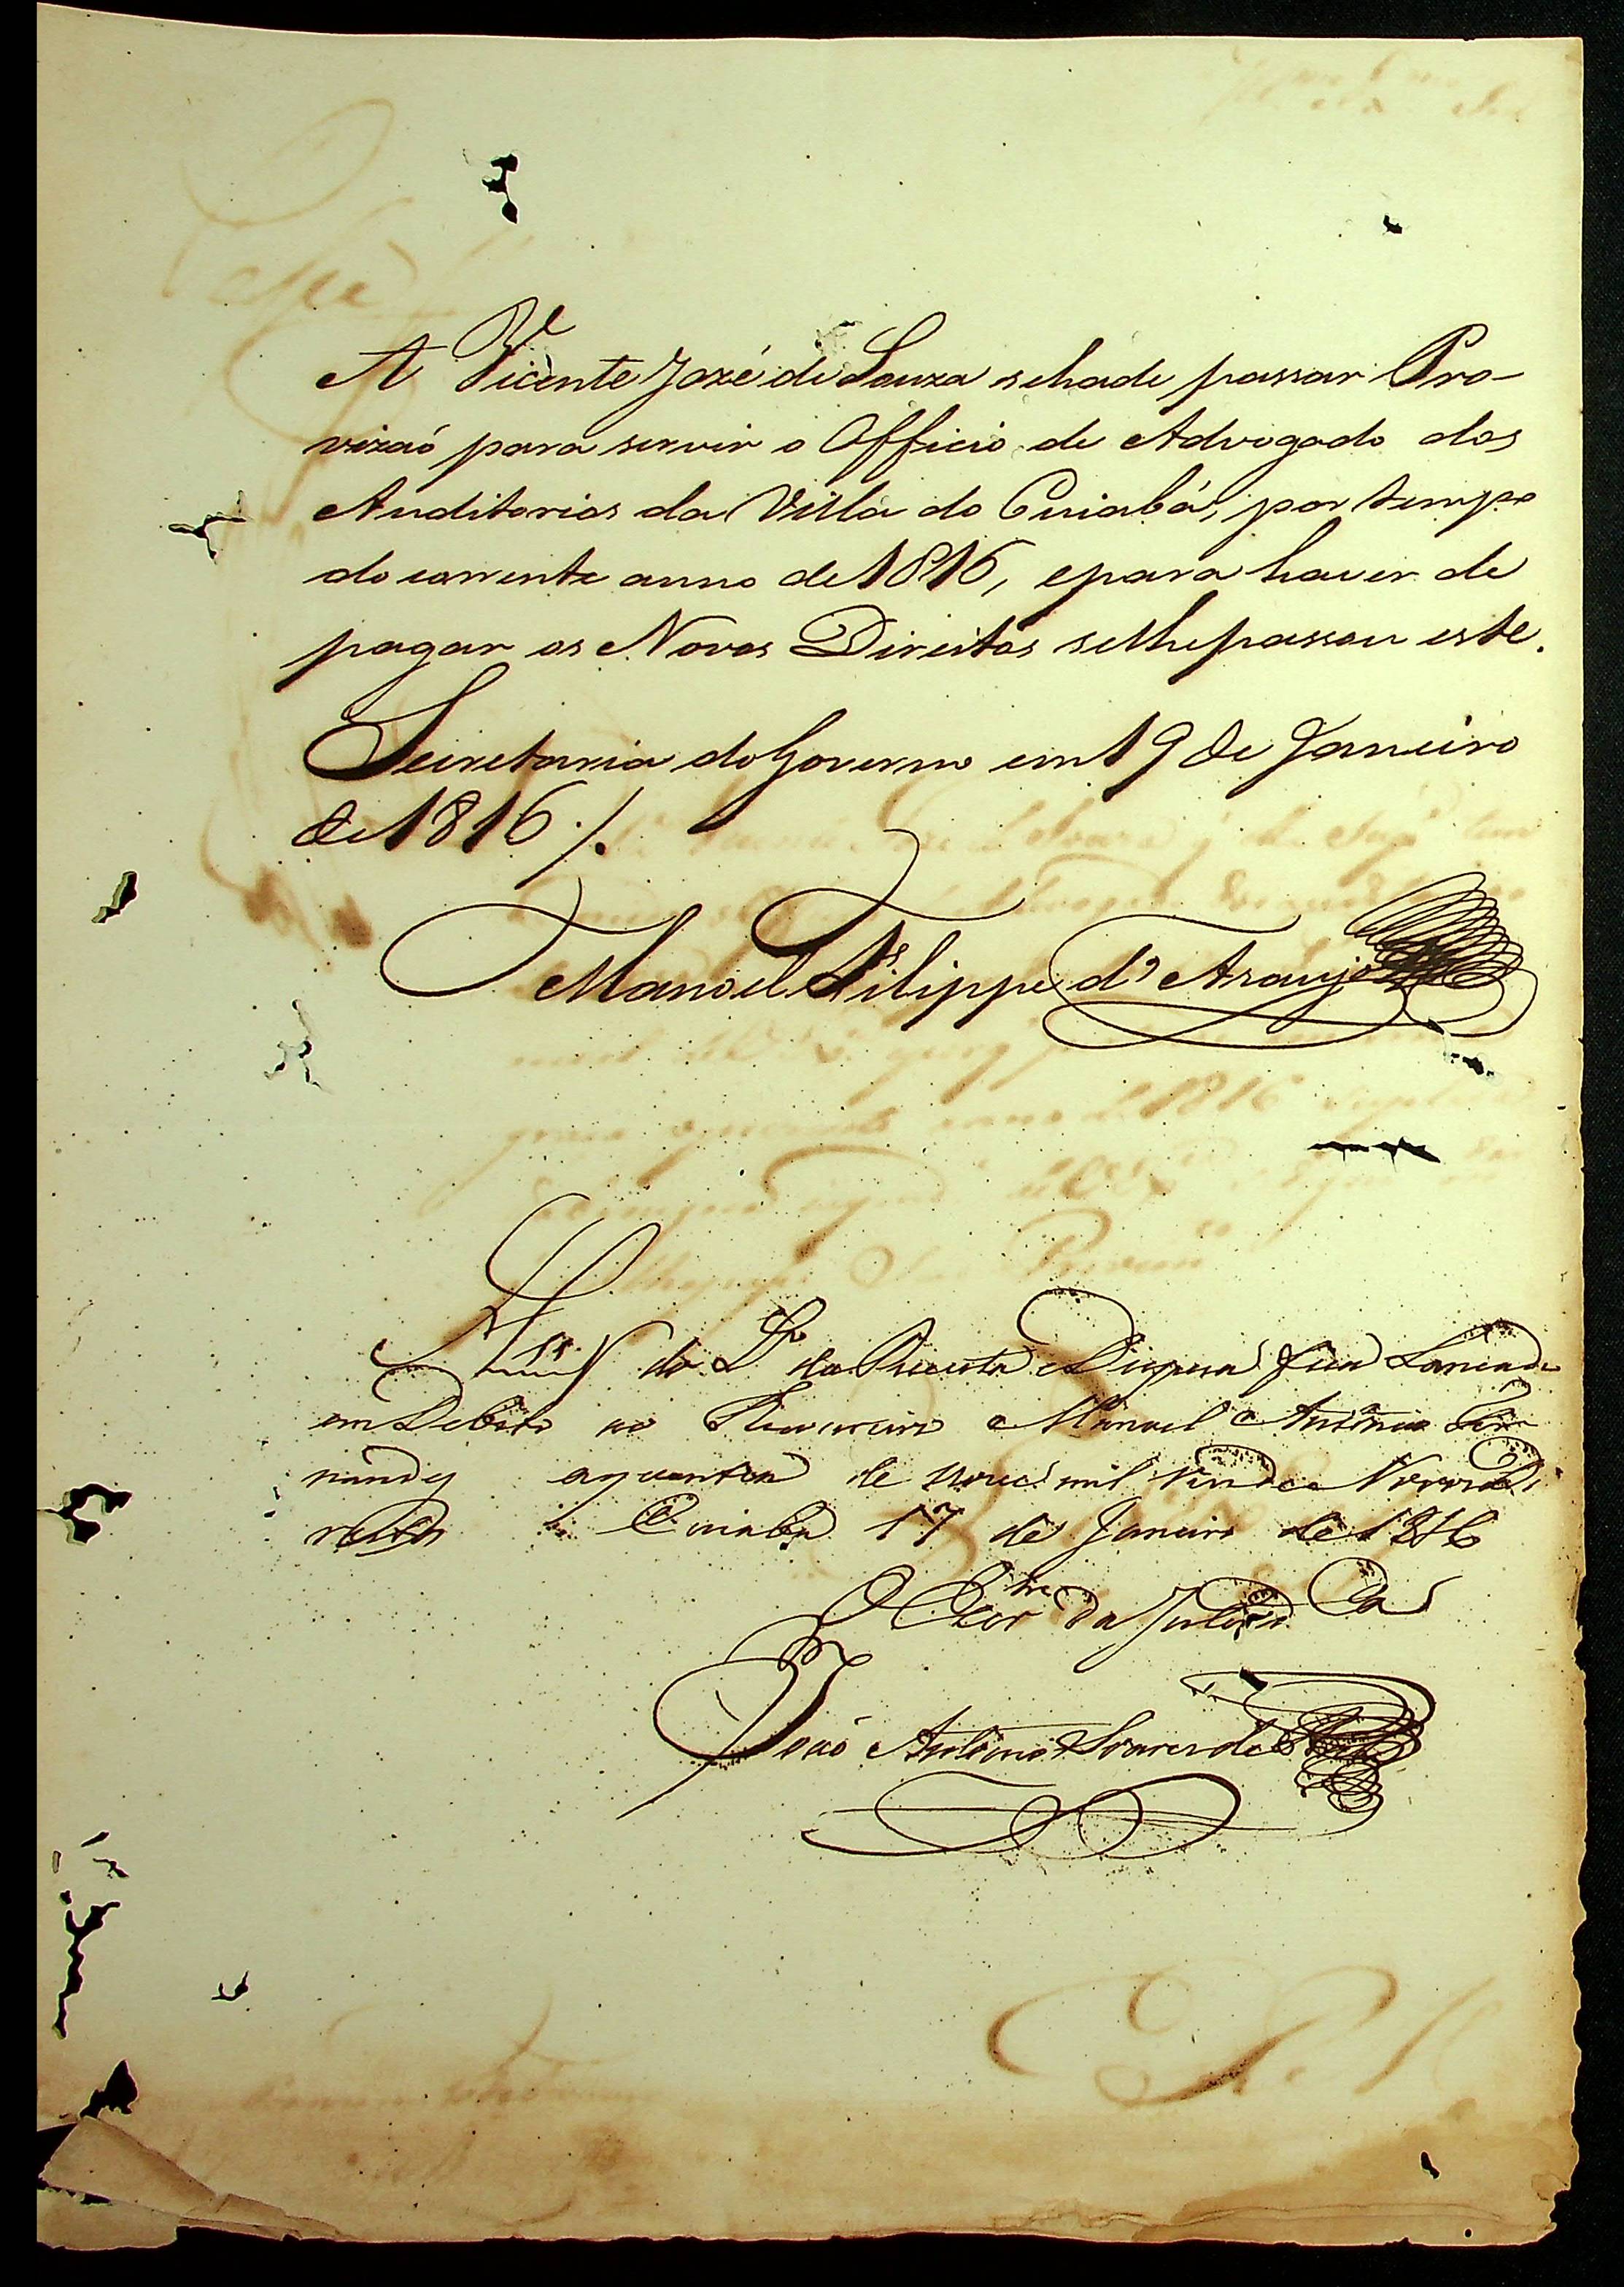 A Vicente Jozé de Souza se hade passar Pro-
vizaõ para servir o Officio de Advogado dos
Auditorios da Villa do Cuiabá, por tempo
do corrente anno de 1816, e para haver de
pagar os Novos Direitos se lhe passou este.
Secretaria do Governo em 19 de Janeiro
de 1816 ./.
Manoel Filippe d'Araujo
do Lº da Receita e Despeza fica Lancado
em Debito ao Thezoureiro Manoel Antonio Fer
nandes aquantia de mil Novos Di
reitos Cuiaba 17 de Janeiro de 1816
O da
João Antonio Soares de